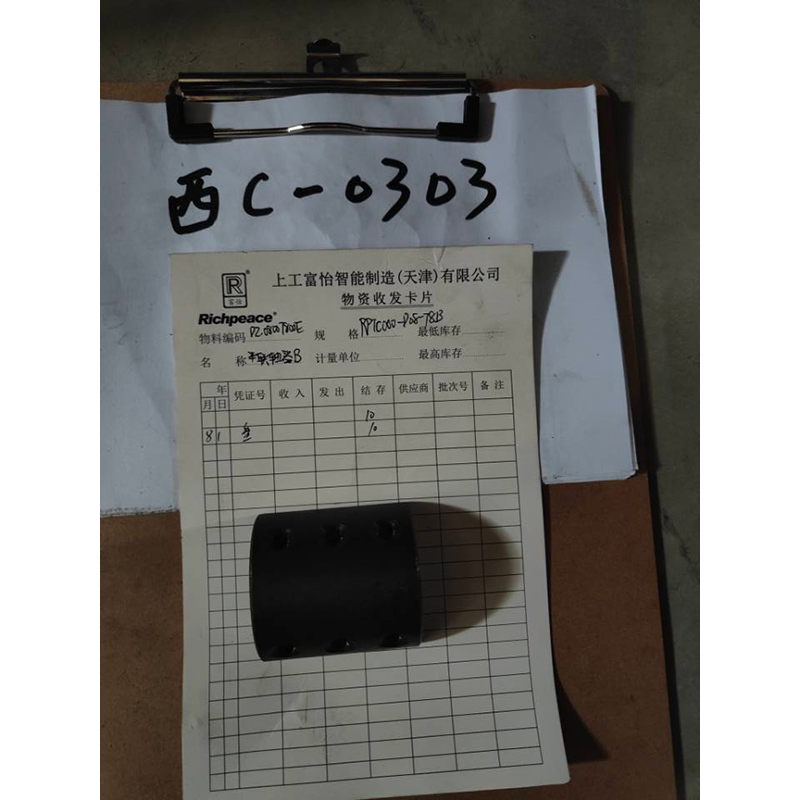 西C-0303
R
富怡
Richpeace
上工富怡智能制造(天津)有限公司
物资收发卡片
物料编码 规 格 最低库存
名 称 B 计量单位 最高库存
年 月 日 凭证号 收 入 发 出 结 存 供应商 批次号 备 注
10
8 1 10